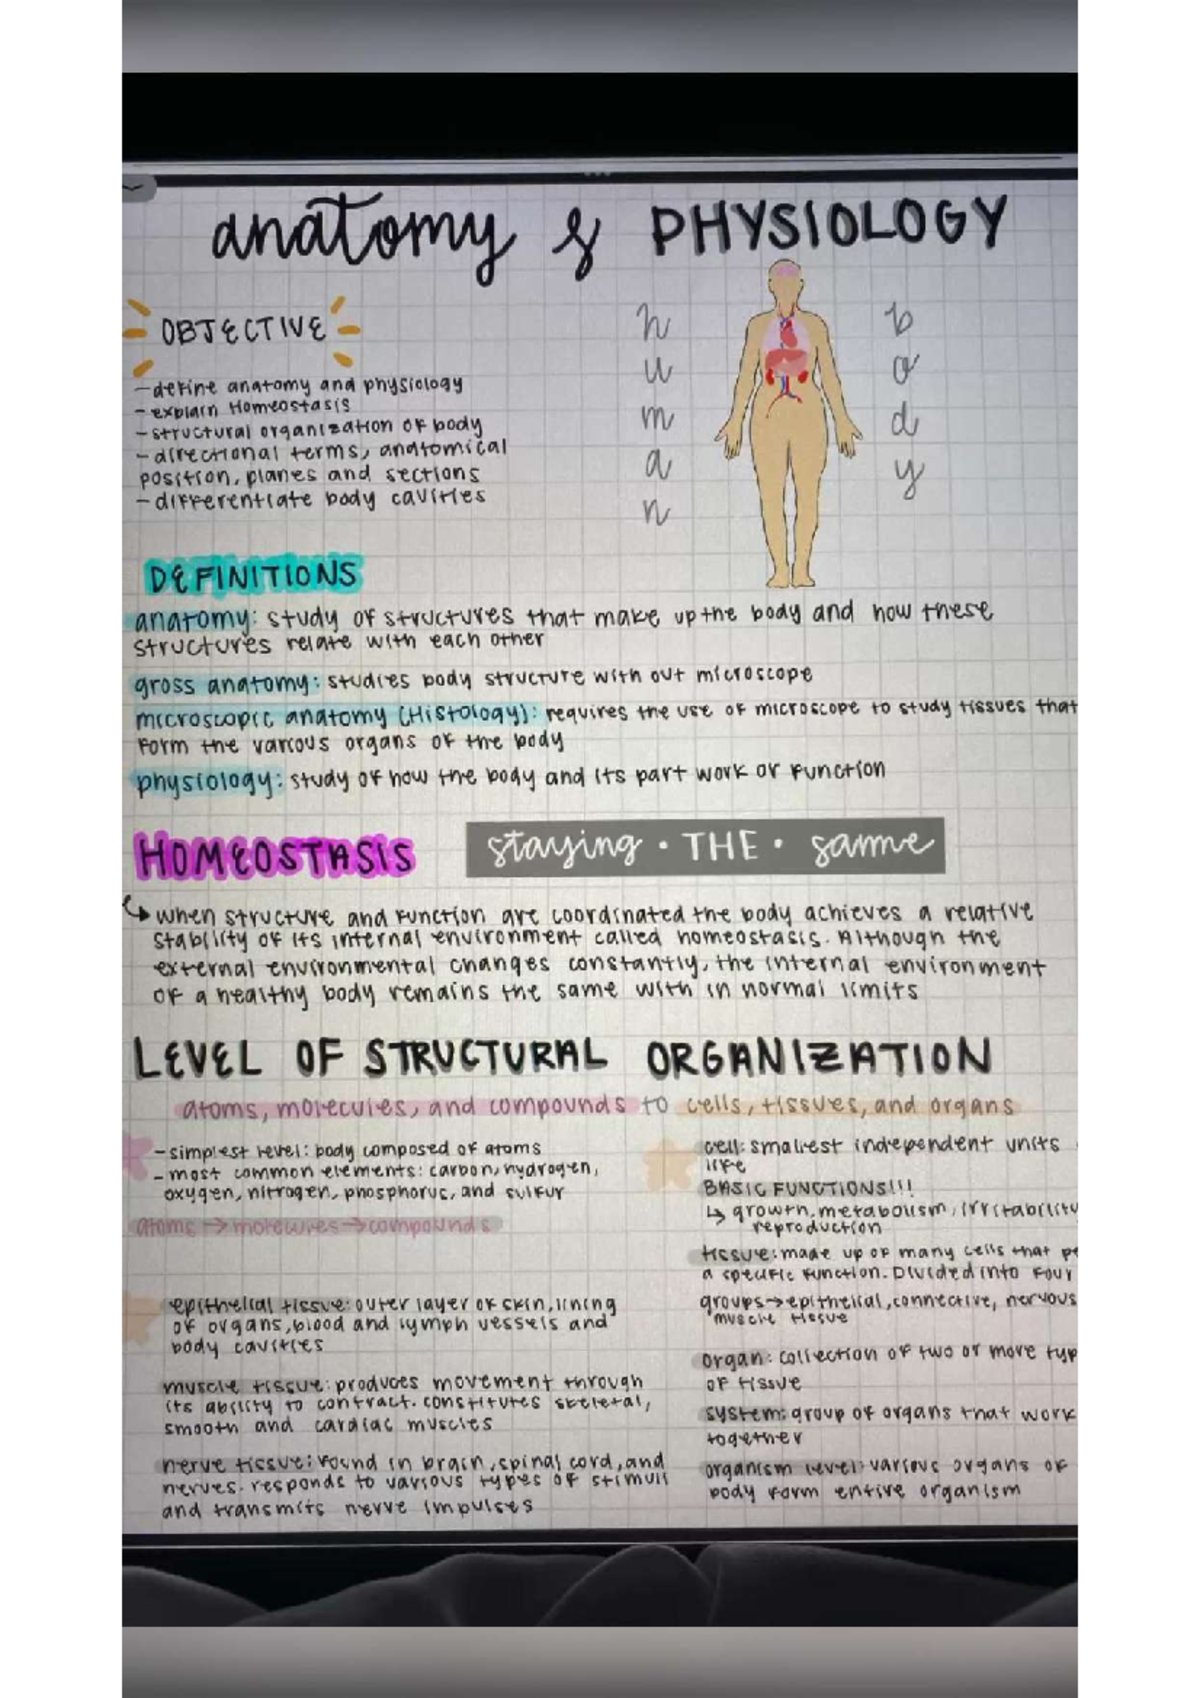 anatomy & PHYSIOLOGY
OBJECTIVE
-define anatomy and physiology
-explain Homeostasis
-structural organization of body
-directional terms, anatomical
position, planes and sections
-differentiate body cavities
human
body
DEFINITIONS
anatomy: study of structures that make up the body and how these
structures relate with each other
gross anatomy: studies body structure with out microscope
microscopic anatomy (Histology): requires the use of microscope to study tissues that
form the various organs of the body
physiology: study of how the body and its part work or function
HOMEOSTASIS
staying • THE • same
↳ when structure and function are coordinated the body achieves a relative
stability of its internal environment called homeostasis. Although the
external environmental changes constantly, the internal environment
of a healthy body remains the same with in normal limits
LEVEL OF STRUCTURAL ORGANIZATION
atoms, molecules, and compounds to cells, tissues, and organs
-simplest level: body composed of atoms
-most common elements: carbon, hydrogen,
oxygen, nitrogen, phosphorus, and sulfur
atoms → molecules → compounds
epithelial tissue: outer layer of skin, lining
of organs, blood and lymph vessels and
body cavities
muscle tissue: produces movement through
its ability to contract. constitutes skeletal,
smooth and cardiac muscles
nerve tissue: found in brain, spinal cord, and
nerves. responds to various types of stimuli
and transmits nerve impulses
cell: smallest independent units
life
BASIC FUNCTIONS!!!
↳ growth, metabolism, irritability
reproduction
tissue: made up of many cells that pe
a specific function. Divided into four
groups → epithelial, connective, nervous
muscle tissue
organ: collection of two or more typ
of tissue
system: group of organs that work
together
organism level: various organs of
body form entire organism